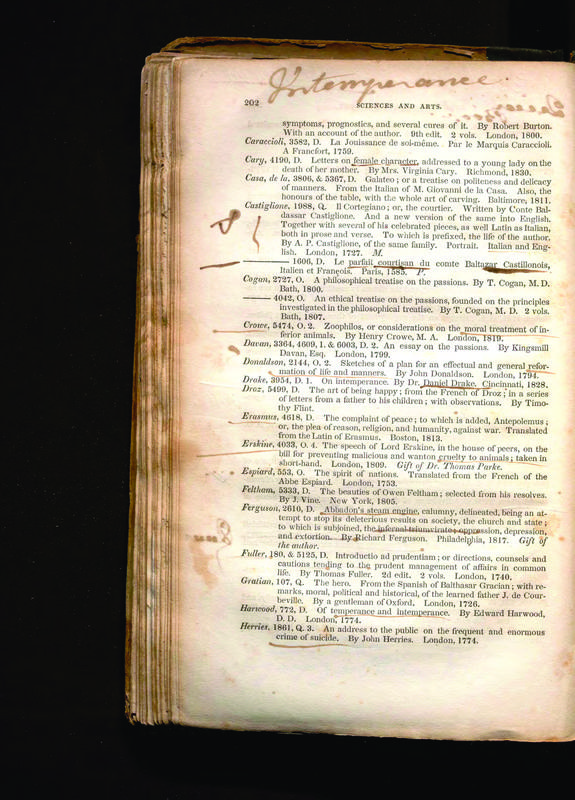 Intemperance
202
SCIENCES AND ARTS.
symptoms, prognostics, and several cures of it. By Robert Burton.
With an account of the author. 9th edit. 2 vols. London, 1800.
Caraccioli, 3582, D. La Jouissance de soi-même. Par le Marquis Caraccioli.
A Francfort, 1759.
Cary, 4190, D. Letters on female character, addressed to a young lady on the
death of her mother. By Mrs. Virginia Cary. Richmond, 1830.
Casa, de la. 3806, & 5367, D. Galateo; or a treatise on politeness and delicacy
of manners. From the Italian of M. Giovanni de la Casa. Also, the
honours of the table, with the whole art of carving. Baltimore, 1811.
Castiglione, 1988, Q. Il Cortegiano; or, the courtier. Written by Conte Bal-
dassar Castiglione. And a new version of the same into English.
Together with several of his celebrated pieces, as well Latin as Italian,
both in prose and verse. To which is prefixed, the life of the author.
By A. P. Castiglione, of the same family. Portrait. Italian and Eng-
lish. London, 1727. M.
—— 1606, D. Le parfait courtisan du comte Baltazar Castillonois,
Italien et François. Paris, 1585. P.
Cogan, 2727, O. A philosophical treatise on the passions. By T. Cogan, M. D.
Bath, 1800.
—— 4042, O. An ethical treatise on the passions, founded on the principles
investigated in the philosophical treatise. By T. Cogan, M. D. 2 vols.
Bath, 1807.
Crowe, 5474, O. 2. Zoophilos, or considerations on the moral treatment of in-
ferior animals. By Henry Crowe, M. A. London, 1819.
Davan, 3364, 4609, 1. & 6003, D. 2. An essay on the passions. By Kingsmill
Davan, Esq. London, 1799.
Donaldson, 2144, O. 2. Sketches of a plan for an effectual and general refor-
mation of life and manners. By John Donaldson. London, 1794.
Drake, 3954, D. 1. On intemperance. By Dr. Daniel Drake. Cincinnati, 1828.
Droz, 5499, D. The art of being happy; from the French of Droz; in a series
of letters from a father to his children; with observations. By Timo-
thy Flint.
Erasmus, 4618, D. The complaint of peace; to which is added, Antepolemus;
or, the plea of reason, religion, and humanity, against war. Translated
from the Latin of Erasmus. Boston, 1813.
Erskine, 4033, O. 4. The speech of Lord Erskine, in the house of peers, on the
bill for preventing malicious and wanton cruelty to animals; taken in
short-hand. London, 1809. Gift of Dr. Thomas Parke.
Espiard, 553, O. The spirit of nations. Translated from the French of the
Abbe Espiard. London, 1753.
Feltham, 5333, D. The beauties of Owen Feltham; selected from his resolves.
By J. Vine. New York, 1805.
Ferguson, 2610, D. Abbadon's steam engine, calumny, delineated, being an at-
tempt to stop its deleterious results on society, the church and state;
to which is subjoined, the infernal triumvirate: oppression, depression,
and extortion. By Richard Ferguson. Philadelphia, 1817. Gift of
the author.
Fuller, 180, & 5125, D. Introductio ad prudentiam; or directions, counsels and
cautions tending to the prudent management of affairs in common
life. By Thomas Fuller. 2d edit. 2 vols. London, 1740.
Gratian, 107, Q. The hero. From the Spanish of Balthasar Gracian; with re-
marks, moral, political and historical, of the learned father J. de Cour-
beville. By a gentleman of Oxford. London, 1726.
Harwood, 772, D. Of temperance and intemperance. By Edward Harwood,
D. D. London, 1774.
Herries, 1861, Q. 3. An address to the public on the frequent and enormous
crime of suicide. By John Herries. London, 1774.